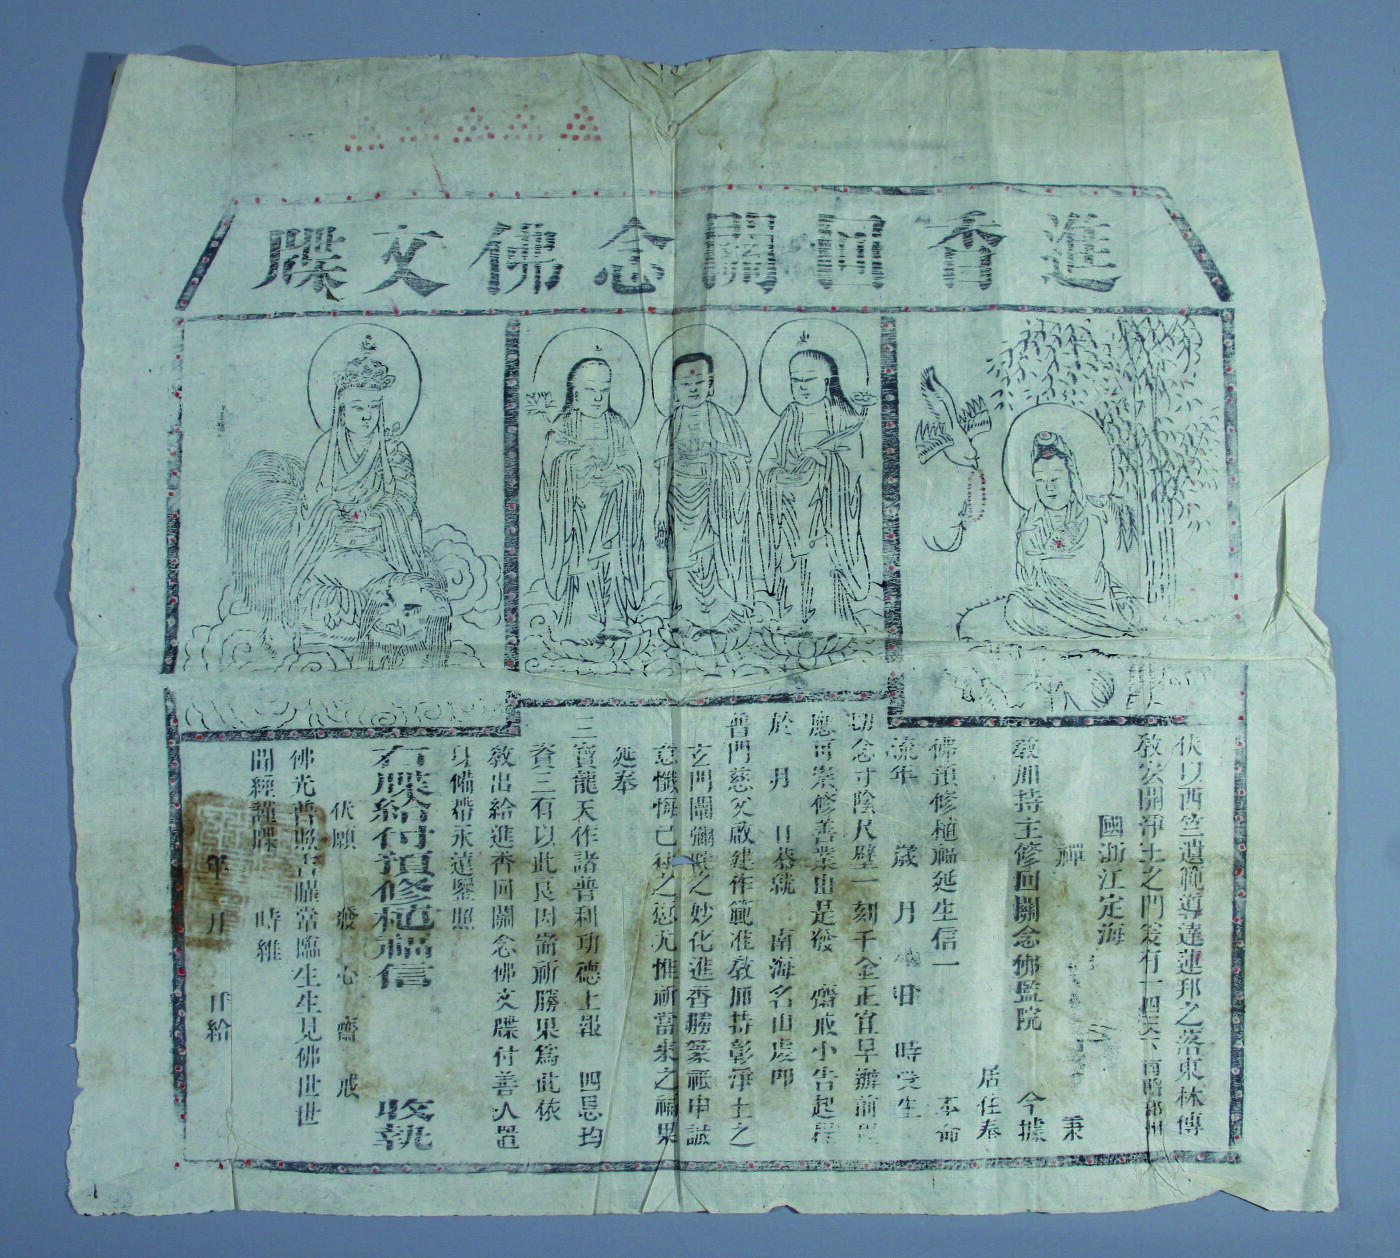 進香回關念佛文牒
伏以西竺遺範導達蓮邦之落東林傳
教宏開淨土之門爰有一四天下南贍部州
國浙江定海
禪 秉
教加持主修回關念佛監院 今據
居住奉
佛預修植福延生信一 本命
流年 歲 月 日 時受生
切念寸陰尺璧一刻千金正宜早辦前
應可崇修善業由是發 齋戒小告起程
於 月 日恭就 南海名山虔叩
普門慈父啟建作範准教加持彰淨土之
玄門闡彌陀之妙化進香勝篆祗申誠
意懺悔已往之愆尤惟祈當來之福果
延奉
三寶龍天作諸普利功德上報 四恩均
資三有以此良因耑祈勝果為此依
教出給進香回關念佛文牒付善人置
身備帶永遠鑒照
右牒給付預修植福信 收執
伏願 發心齋戒
佛光普照吉曜常臨生生見佛世世
聞經謹牒 時維
年 月 日給